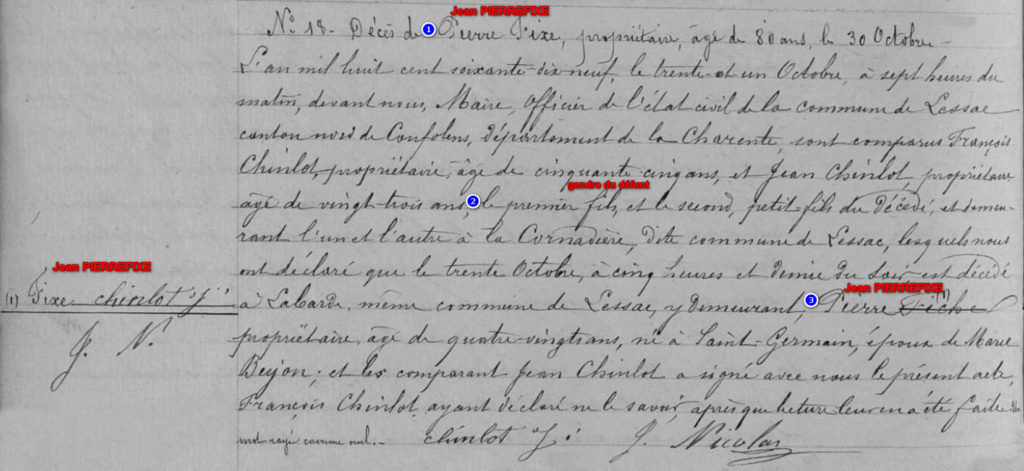 Jean PIERREFIXE
N° 18 - Décès de 1 Pierre Fixe, propriétaire, âgé de 80 ans, le 30 Octobre -
L'an mil huit cent soixante-dix-neuf, le trente-et un Octobre, à sept heures du
matin, devant nous, Maire, officier de l'état civil de la commune de Lessac
canton nord de Confolens, département de la Charente, sont comparus François
Chinlot, propriétaire, âgé de cinquante cinq ans, et Jean Chinlot, propriétaire
gendre du défunt
âgé de vingt-trois ans, 2 le premier fils, et le second, petit-fils du décédé, et demeu-
rant l'un et l'autre à la Cornadière, dite commune de Lessac, lesquels nous
Jean PIERREFIXE
ont déclaré que le trente Octobre, à cinq heures et demie du soir est décédé
Jean PIERREFIXE
(1) Fixe. chinlot J.
à Labarde, même commune de Lessac, y demeurant, 3 Pierre Fiche (1)
J. N.
propriétaire, âgé de quatre-vingts ans, né à Saint-Germain, époux de Marie
Beyon; et les comparant Jean Chinlot a signé avec nous le présent acte,
François Chinlot, ayant déclaré ne le savoir, après que lecture leur en a été faite. Un
mot rayé comme nul. - chinlot J. J. Nicolas